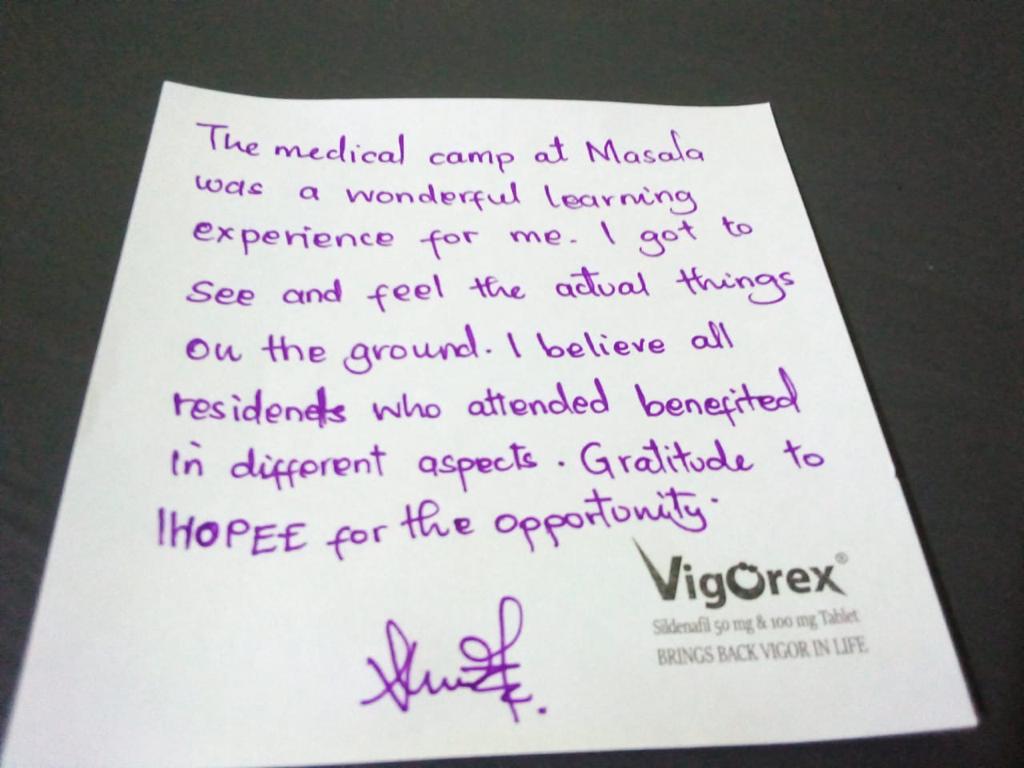 The medical camp at Masala
was a wonderful learning
experience for me. I got to
see and feel the actual things
on the ground. I believe all
residents who attended benefited
in different aspects. Gratitude to
IHOPEE for the opportunity.
VigOrex®
Sildenafil 50 mg & 100 mg Tablet
BRINGS BACK VIGOR IN LIFE